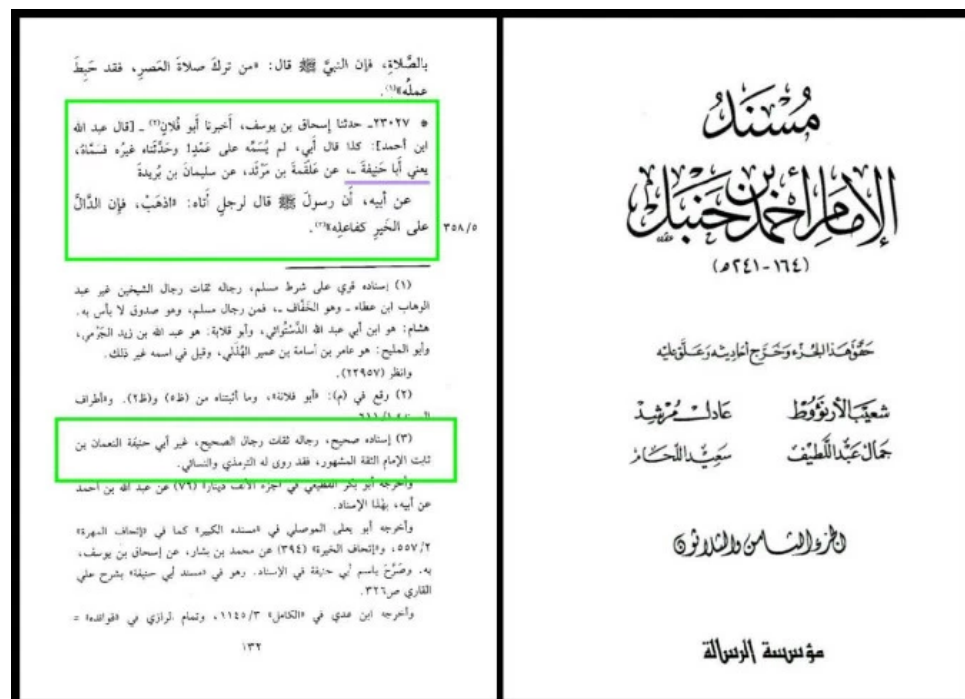 مُسْنَدُ
الإمام أحمد بن حنبل
(١٦٤-٢٤١ه)
حقّق هذا الجزء وخرّج أحاديثه وعلّق عليه
شعيب الأرنؤوط عادل مرشد
جمال عبد اللطيف سعيد اللحام
الجزء الثامن والثلاثون
مؤسسة الرسالة
بالصَّلاةِ، فإن النبيَّ ﷺ قال: «من تركَ صلاةَ العَصرِ، فقد حَبِطَ
عملُه»(١).
* ٢٣٠٢٧ـ حدثنا إسحاق بن يوسف، أخبرنا أبو فُلانٍ(٢) ـ [قال عبد الله
ابن أحمد]: كذا قال أبي، لم يُسَمِّه على عَمْدٍ! وحَدَّثَناه غيرُه فسَمَّاهُ،
يعني أبا حَنيفةَ ـ، عن عَلْقَمةَ بن مَرْثَد، عن سليمانَ بن بُريدةَ
عن أبيه، أن رسولَ ﷺ قال لرجلٍ أتاه: «اذهَبْ، فإن الدَّالَّ
على الخَيرِ كفاعلِه»(٣).
٣٥٨/٥
(١) إسناده قوي على شرط مسلم، رجاله ثقات رجال الشيخين غير عبد
الوهاب ابن عطاء ـ وهو الخَفَّاف ـ، فمن رجال مسلم، وهو صدوق لا بأس به.
هشام: هو ابن أبي عبد الله الدَّسْتُوائي، وأبو قلابة: هو عبد الله بن زيد الجَرْمي،
وأبو المليح: هو عامر بن أسامة بن عمير الهُذَلي، وقيل في اسمه غير ذلك.
وانظر (٢٢٩٥٧).
(٢) وقع في (م): «أبو فلانة»، وما أثبتناه من (ظ٥) و(ظ٢). و«أطراف
(٣) إسناده صحيح، رجاله ثقات رجال الصحيح، غير أبي حنيفة النعمان بن
ثابت الإمام الثقة المشهور، فقد روى له الترمذي والنسائي.
وأخرجه أبو بكر القطيعي في «جزء الألف دينار» (٧٦) عن عبد الله بن أحمد
عن أبيه، بهذا الإسناد.
وأخرجه أبو يعلى الموصلي في «مسنده الكبير» كما في «إتحاف المهرة»
٥٥٧/٢، و«إتحاف الخيرة» (٣٩٤) عن محمد بن بشار، عن إسحاق بن يوسف،
به. وصَرَّحَ باسم أبي حنيفة في الإسناد. وهو في «مسند أبي حنيفة» بشرح علي
القاري ص٣٢٦.
وأخرجه ابن عدي في «الكامل» ١١٤٥/٣، وتمام الرازي في «فوائده» =
١٣٢